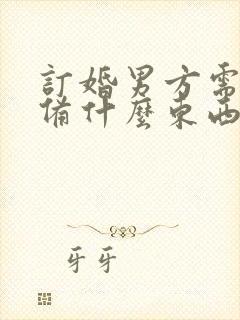 訂婚男方需
備什麼東西
牙牙